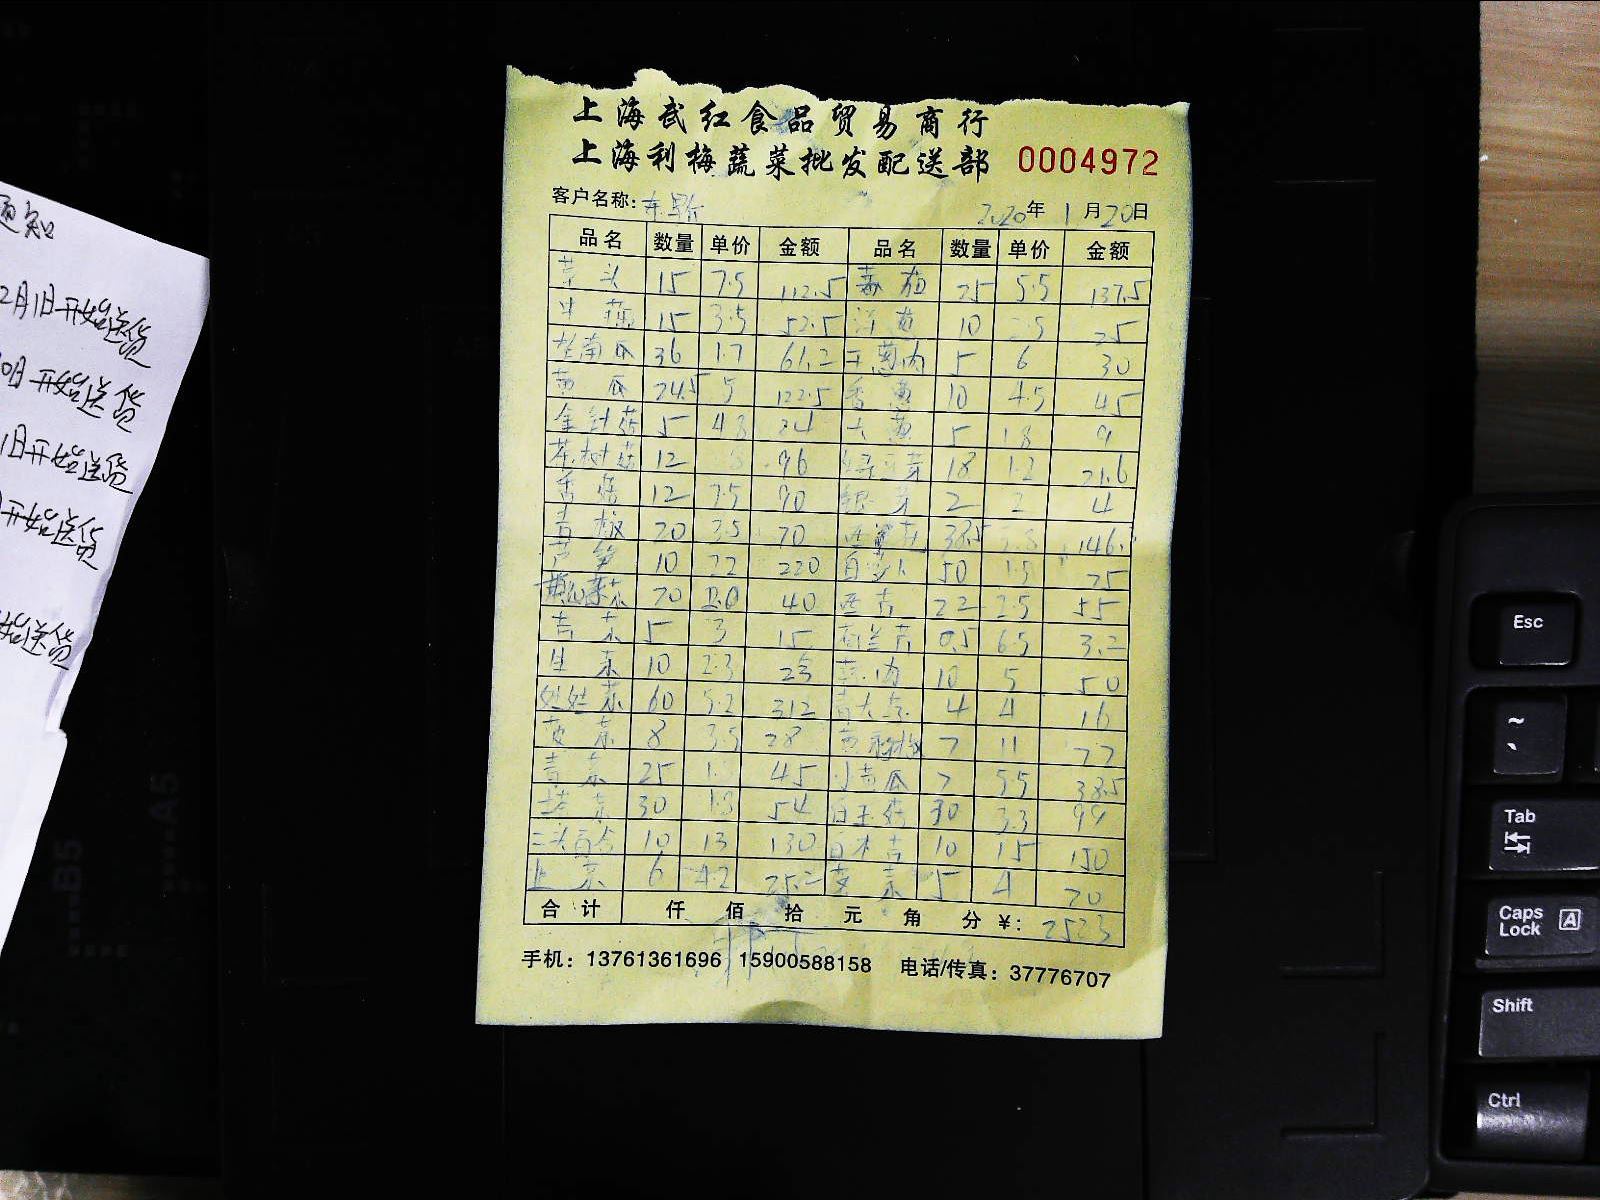 上海武红食品贸易商行
上海利梅蔬菜批发配送部 0004972
客户名称: 2020年 1月20日
品名 数量 单价 金额 品名 数量 单价 金额
15 7.5 112.5 番茄 25 5.5 137.5
15 3.5 52.5 10 25
南瓜 36 1.7 61.2 5 6 30
黄瓜 24.5 5 122.5 10 4.5 45
金针菇 5 4.8 24 5 1.8 9
茶树菇 12 8 96 绿豆芽 18 1.2 21.6
香菇 12 7.5 90 银芽 2 2 4
青椒 20 3.5 70 西兰花 38.5 3.8 146.
芦笋 10 22 220 白萝卜 50 1.5 75
20 2.0 40 西芹 22 2.5 55
5 3 15 荷兰芹 0.5 6.5 3.2
生菜 10 2.3 23 10 5 50
娃娃菜 60 5.2 312 青大 4 4 16
菠菜 8 3.5 28 7 11 77
青菜 25 1. 45 小黄瓜 7 5.5 38.5
塔菜 30 1.8 54 白玉菇 30 3.3 99
10 13 130 10 15 150
6 4.2 25.2 5 4 20
合计 仟 佰 拾 元 角 分 ¥: 2523
手机: 13761361696 15900588158 电话/传真: 37776707
通知
2月1日开始送货
开始送货
1日开始送货
开始送货
始送货
Esc
~
Tab
Caps Lock A
Shift
Ctrl
B5
A5